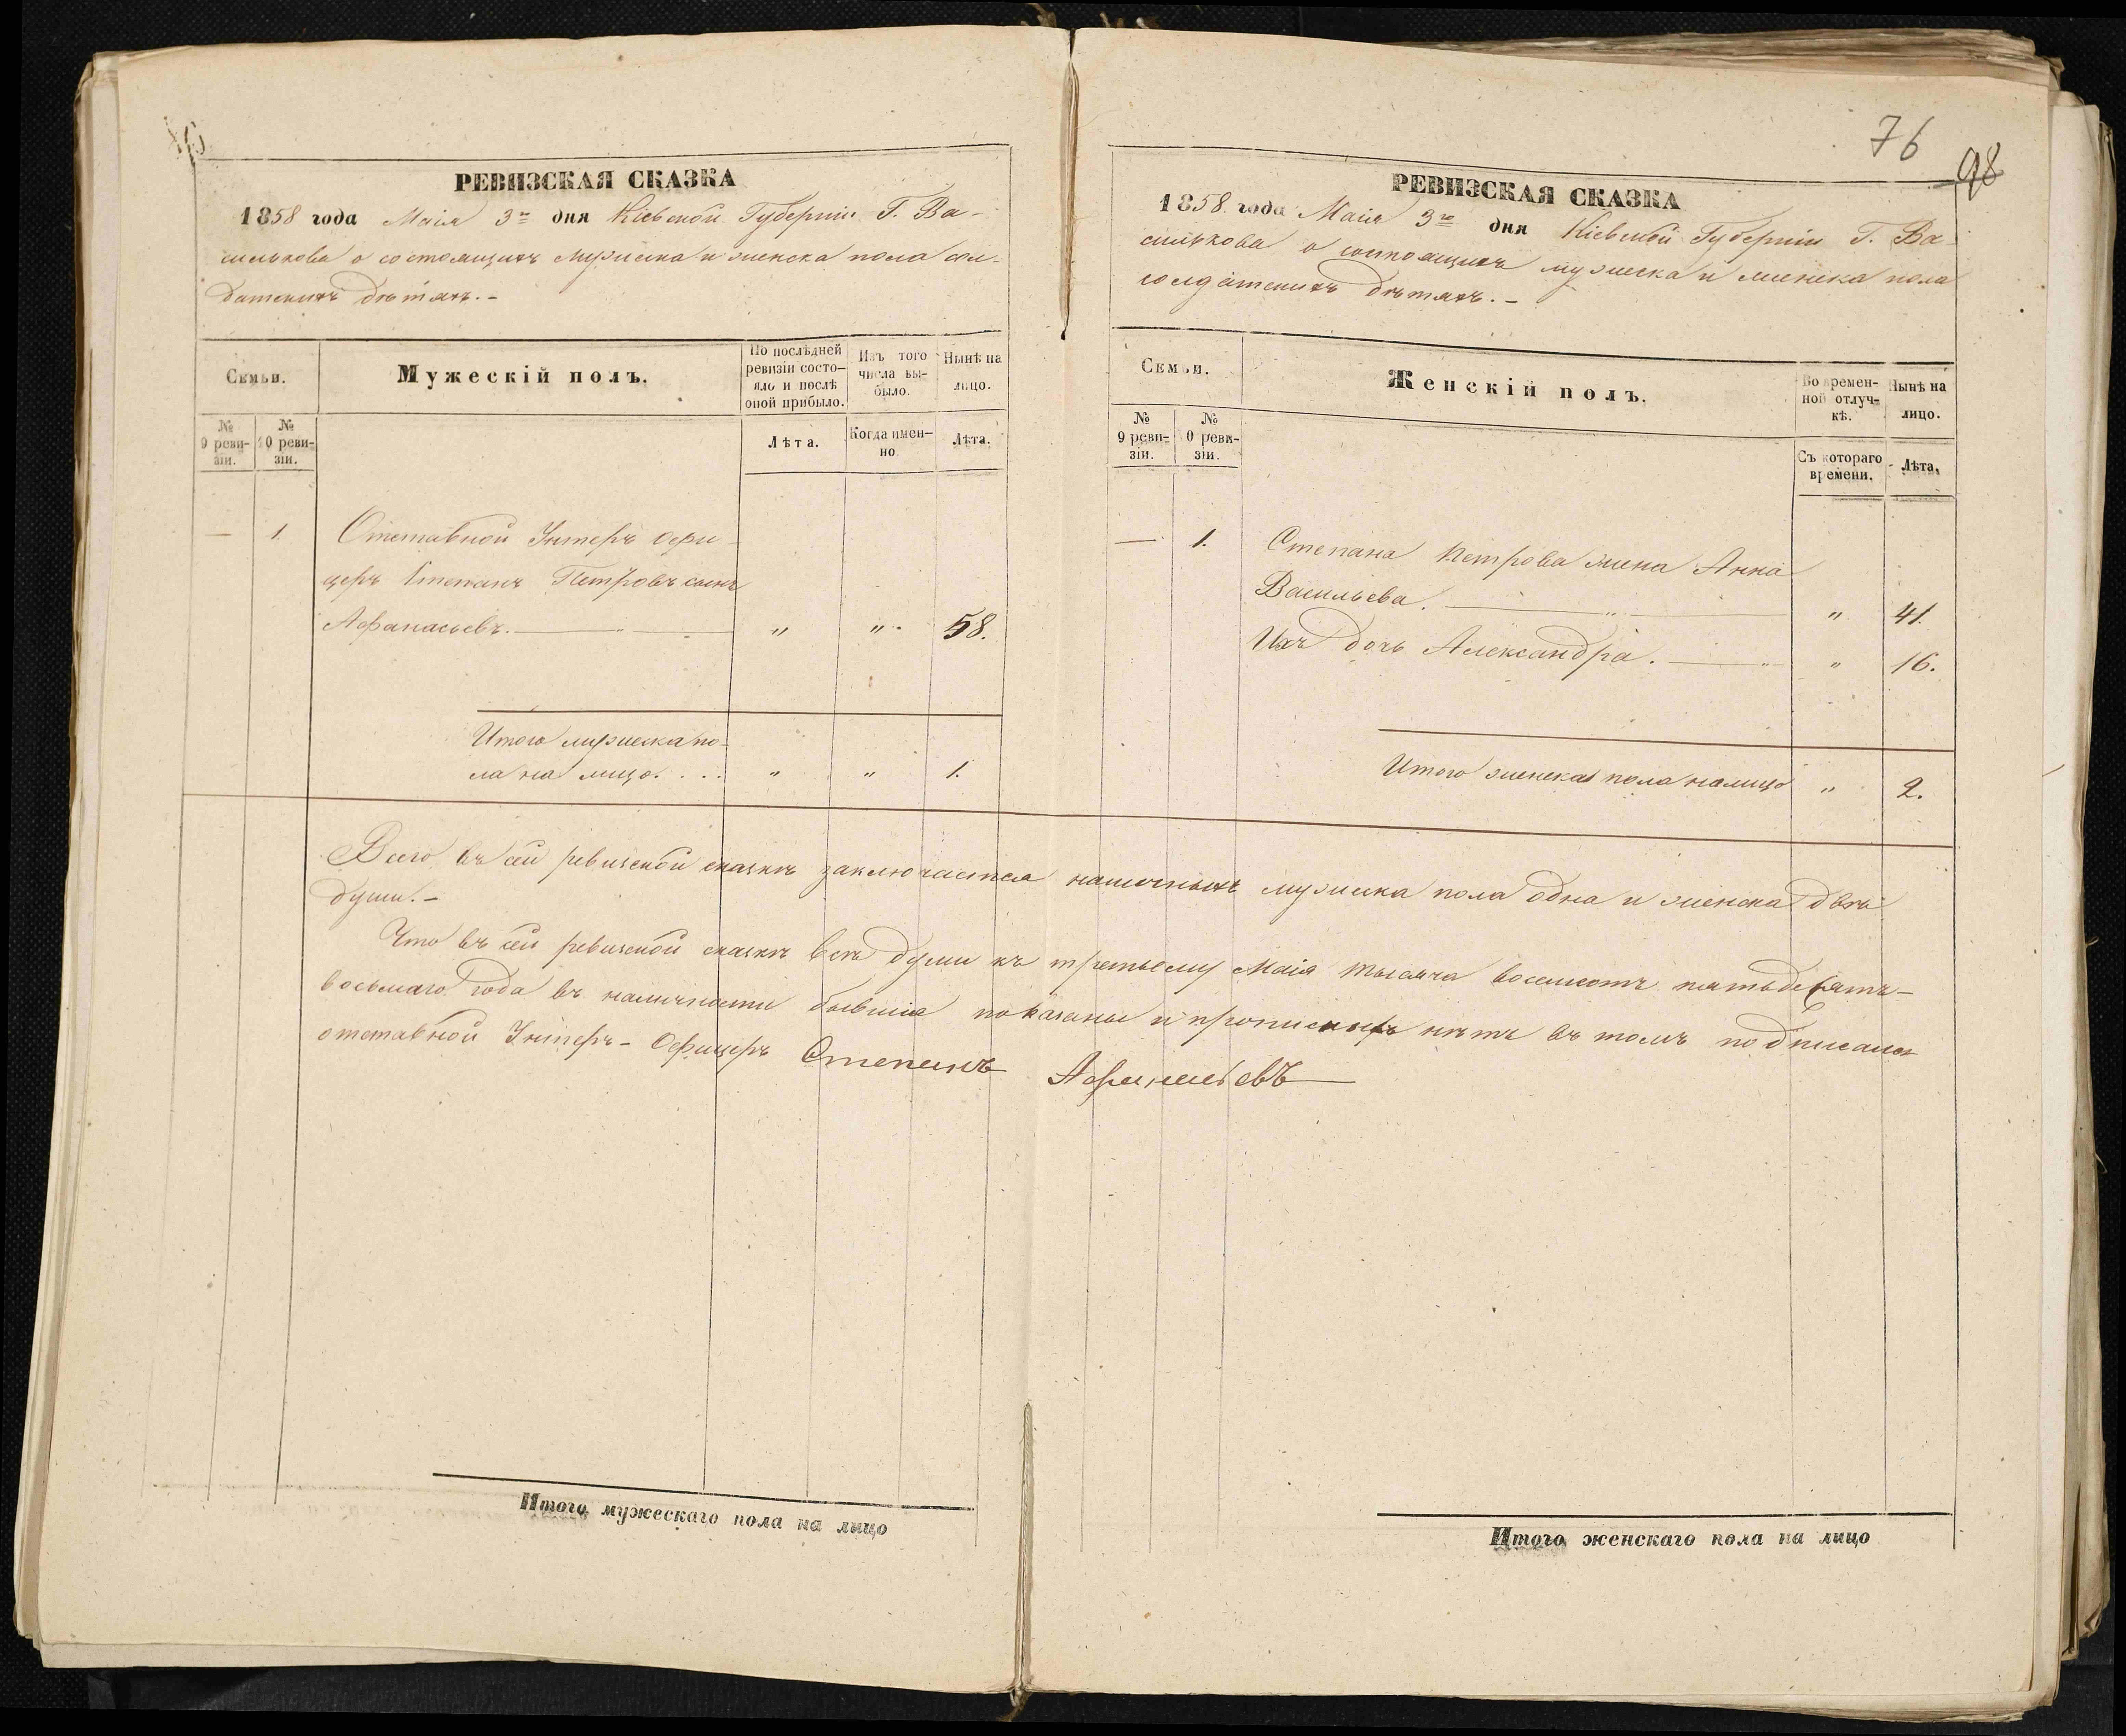 РЕВИЗСКАЯ СКАЗКА
1858 года Маія 3го дня Кіевской Губерніи Г. Ва-
силькова о состоящихъ мужеска и женска пола сол-
датскихъ дѣтяхъ. -
Семьи.
Мужескій полъ.
По послѣдней ревизіи состо-
яло и послѣ оной прибыло.
Изъ того числа вы-
было.
Нынѣ на лицо.
№ 9 реви-
зіи.
№ 10 реви-
зіи.
Лѣта.
Когда имен-
но
Лѣта.
— 1. Отставной Унтеръ Офи-
церъ Степанъ Петровъ сынъ
Афанасьевъ. " " 58.
Итого мужеска по-
ла на лицо. . . . " " 1.
Итого мужескаго пола на лицо
76
98
РЕВИЗСКАЯ СКАЗКА
1858 года Маія 3го дня Кіевской Губерніи Г. Ва-
силькова о состоящихъ мужеска и женска пола
солдатскихъ дѣтяхъ. -
Семьи.
Женскій полъ.
Во времен-
ной отлуч-
кѣ.
Нынѣ на лицо.
№ 9 реви-
зіи.
№ 0 реви-
зіи.
Съ котораго времени.
Лѣта.
— 1. Степана Петрова жена Анна
Васильева. " 41.
Ихъ дочь Александра. " 16.
Итого женска пола налицо " 2.
Всего въ сей ревизской сказкѣ заключается наличныхъ мужеска пола одна и женска двѣ
души. -
Что въ сей ревизской сказкѣ всѣ души къ третьему Маія тысяча восемсотъ пятьдесятъ-
восьмаго года въ наличности бывшіе показаны и прописныхъ нѣтъ въ томъ подписался
отставной Унтеръ-Офицеръ Степанъ Афанасьевъ
Итого женскаго пола на лицо